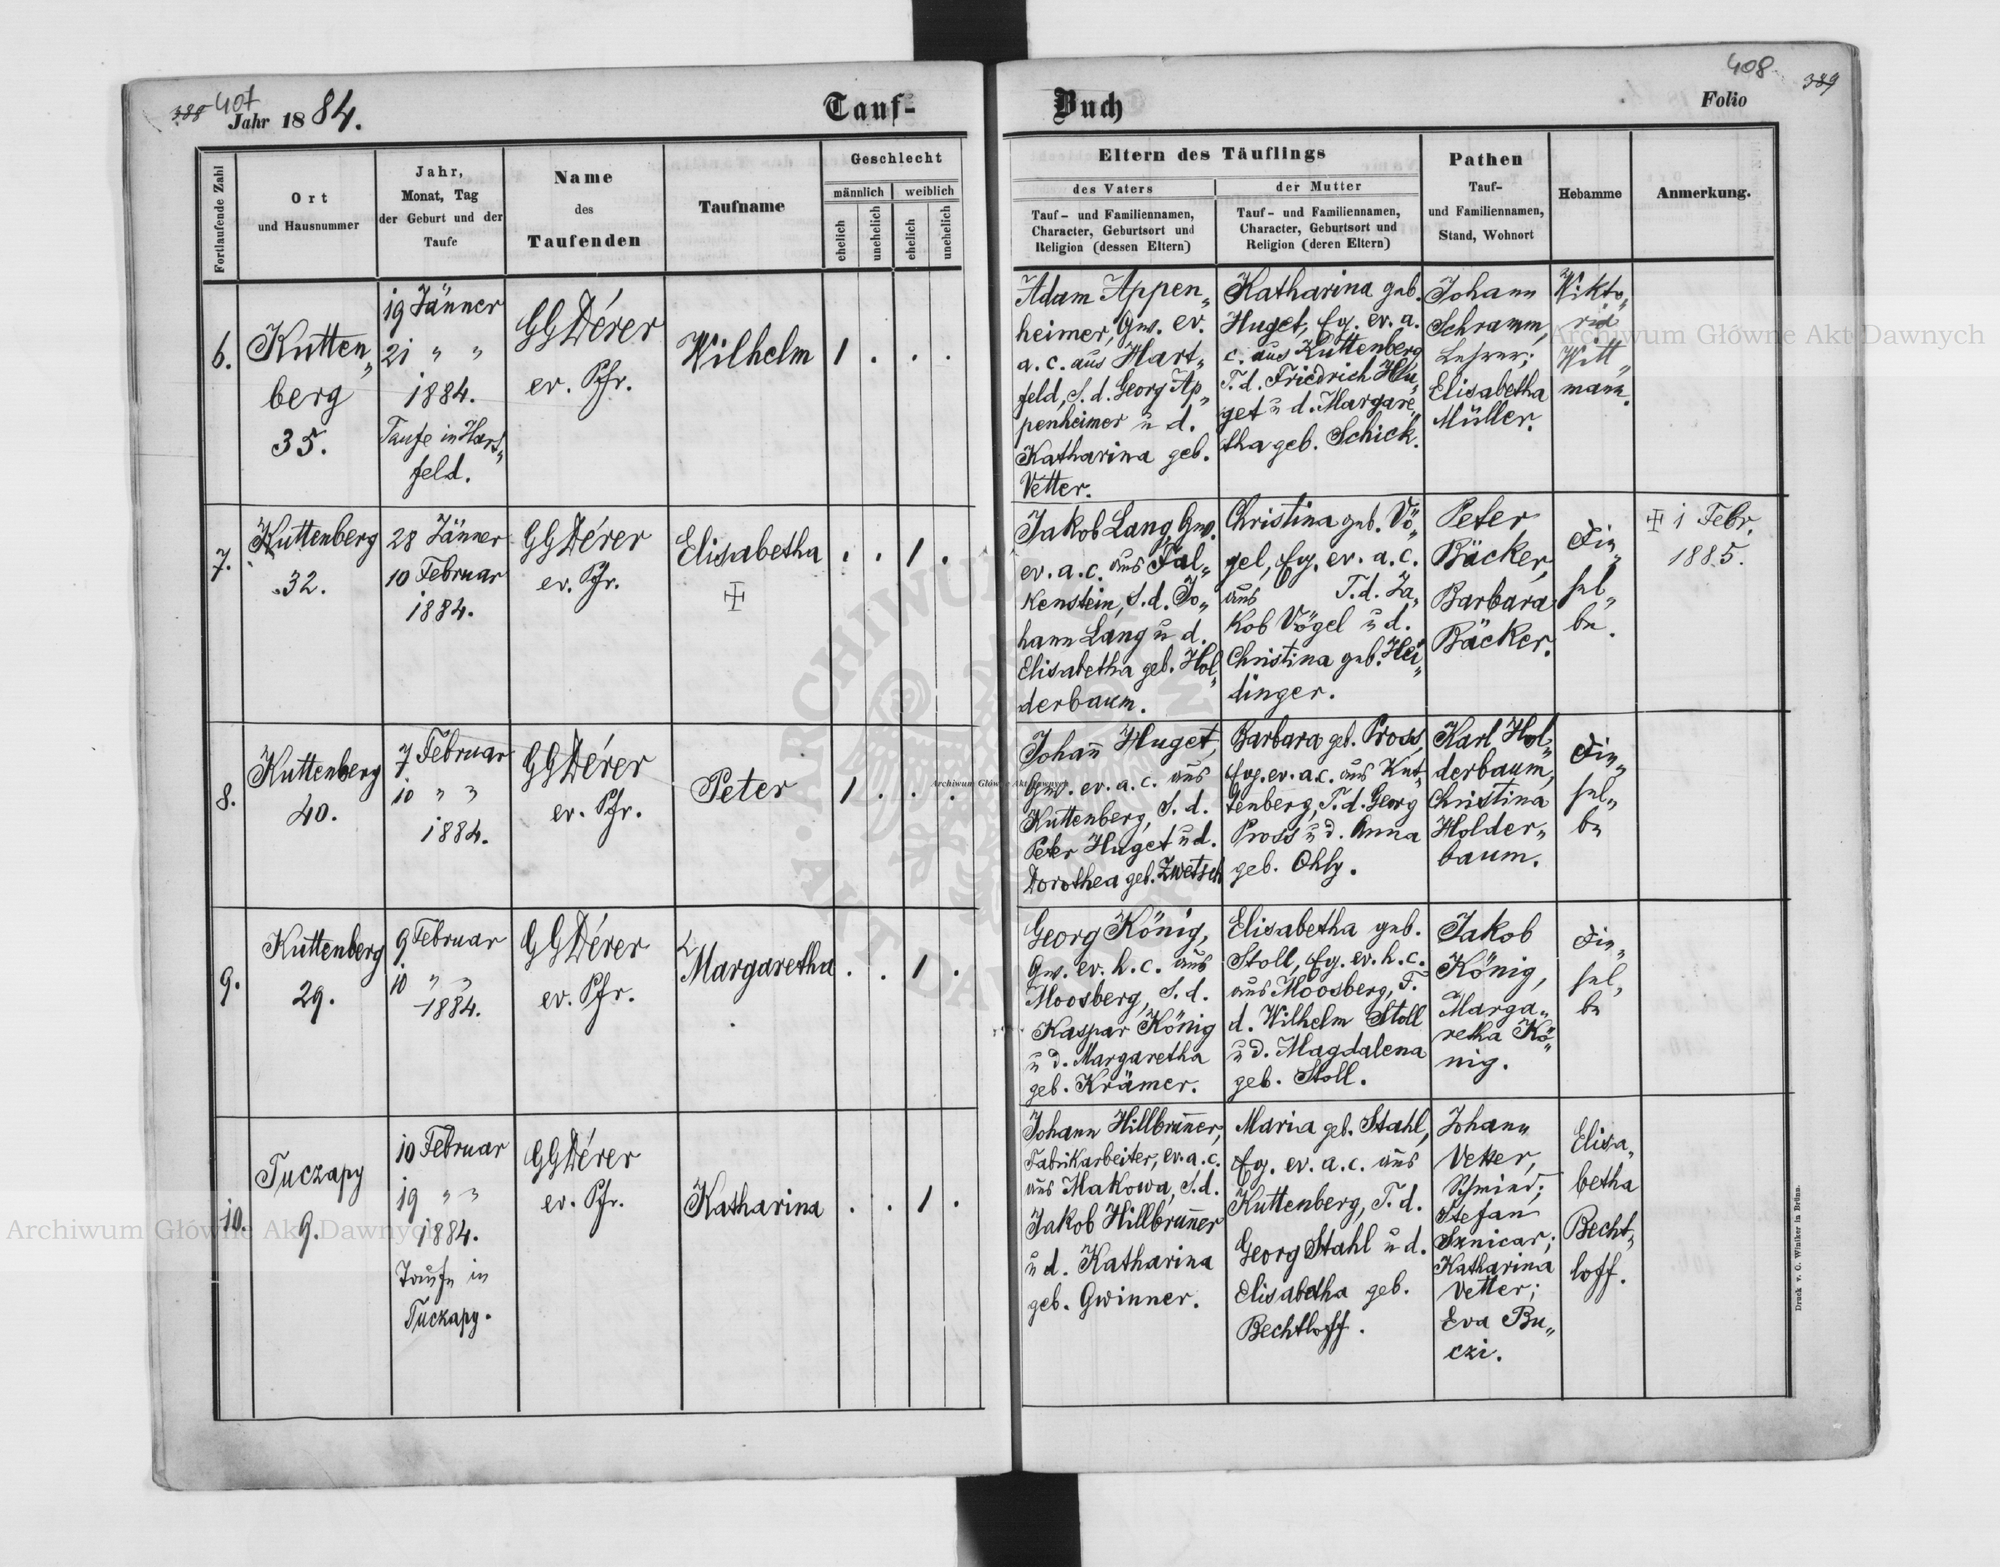 388 407
408 389
Jahr 1884.
Tauf-
Buch
Folio
Fortlaufende Zahl
Ort
und Hausnummer
Jahr,
Monat, Tag
der Geburt und der
Taufe
Name
des
Taufenden
Taufname
Geschlecht
männlich
weiblich
ehelich
unehelich
ehelich
unehelich
Eltern des Täuflings
des Vaters
der Mutter
Tauf- und Familiennamen,
Character, Geburtsort und
Religion (dessen Eltern)
Tauf- und Familiennamen,
Character, Geburtsort und
Religion (deren Eltern)
Pathen
Tauf-
und Familiennamen,
Stand, Wohnort
Hebamme
Anmerkung.
6.
Kutten„
berg
35.
19 Jänner
21 „ „
1884.
Taufe in Hart„
feld.
GGDérer
ev. Pfr.
Wilhelm
1 . . .
Adam Appen„
heimer, Gw. ev.
a. c. aus Hart„
feld, S. d. Georg Ap„
penheimer u d.
Katharina geb.
Vetter.
Katharina geb.
Huget, Eg. ev. a.
c. aus Kuttenberg
T. d. Friedrich Hu„
get u d. Margare„
tha geb. Schick.
Johann
Schramm,
Lehrer;
Elisabetha
Müller.
Wikto„
ria
Witt„
mann.
7.
Kuttenberg
32.
28 Jänner
10 Februar
1884.
GGDérer
ev. Pfr.
Elisabetha
. . 1 .
Jakob Lang, Gw.
ev. a. c. aus Fal„
kenstein, S. d. Jo„
hann Lang u d.
Elisabetha geb. Hol„
derbaum.
Christina geb. Vö„
gel, Eg. ev. a. c.
aus T. d. Ja„
kob Vögel u d.
Christina geb. Hei„
dinger.
Peter
Bäcker,
Barbara
Bäcker.
Die„
sel„
be.
1 Febr.
1885.
8.
Kuttenberg
40.
7 Februar
10 „ „
1884.
GGDérer
ev. Pfr.
Peter
1 . . .
Johann Huget,
Gw. ev. a. c. aus
Kuttenberg, S. d.
Peter Huget u d.
Dorothea geb. Zwetsch
Barbara geb. Pross,
Eg. ev. a. c. aus Kut„
tenberg, T. d. Georg
Pross u d. Anna
geb. Ohly.
Karl Hol„
derbaum,
Christina
Holder„
baum.
Die„
sel„
be
9.
Kuttenberg
29.
9 Februar
10 „ „
1884.
GGDérer
ev. Pfr.
Margaretha
. . 1 .
Georg König,
Gw. ev. h. c. aus
Moosberg, S. d.
Kaspar König
u d. Margaretha
geb. Krämer.
Elisabetha geb.
Stoll, Eg. ev. h. c.
aus Moosberg, T.
d. Wilhelm Stoll
u d. Magdalena
geb. Stoll.
Jakob
König,
Marga„
retha Kö„
nig.
Die„
sel„
be
10.
Tuczapy
9.
10 Februar
19 „ „
1884.
Taufe in
Tuczapy.
GGDérer
ev. Pfr.
Katharina
. . 1 .
Johann Hillbrunner,
Fabrikarbeiter, ev. a. c.
aus Makowa, S. d.
Jakob Hillbrunner
u d. Katharina
geb. Gwinner.
Maria geb. Stahl,
Eg. ev. a. c. aus
Kuttenberg, T. d.
Georg Stahl u d.
Elisabetha geb.
Bechtloff.
Johann
Vetter,
Schmied;
Stefan
Sznicar;
Katharina
Vetter;
Eva Bu„
czi.
Elisa„
betha
Becht„
loff.
Druck v. C. Winiker in Brünn.
Archiwum Główne Akt Dawnych
Archiwum Główne Akt Dawnych
Archiwum Główne Akt Dawnych